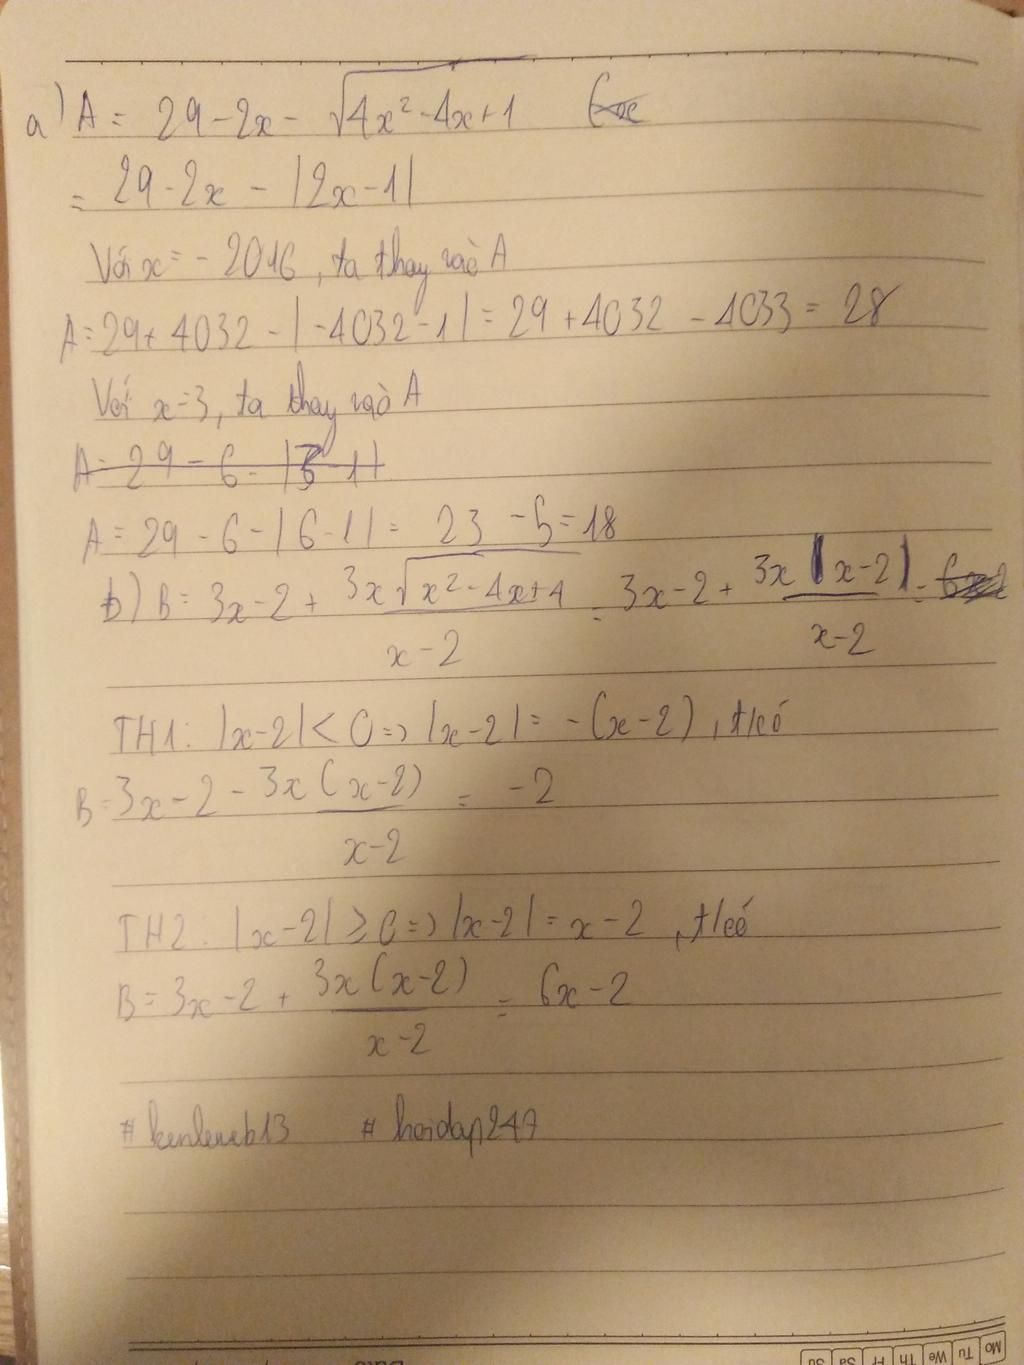 a) A = 29 - 2x - √(4x² - 4x + 1)
= 29 - 2x - |2x - 1|
Với x = - 2016, ta thay vào A
A = 29 + 4032 - |-4032 - 1| = 29 + 4032 - 4033 = 28
Với x = 3, ta thay vào A
A = 29 - 6 - |6 - 1| = 23 - 5 = 18
b) B = 3x - 2 + 3x√(x² - 4x + 4) / (x - 2) = 3x - 2 + 3x|x - 2| / (x - 2) =
TH1: |x - 2| < 0 => |x - 2| = - (x - 2), tacó
B = 3x - 2 - 3x(x - 2) / (x - 2) = -2
TH2: |x - 2| ≥ 0 => |x - 2| = x - 2, tacó
B = 3x - 2 + 3x(x - 2) / (x - 2) = 6x - 2
# hoidap247
Mo Tu We Th Fr Sa Su